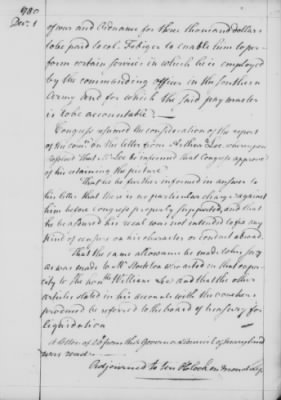 1780
Decr. 1
of war and Ordnance for three thousand dollars
to be paid to Col. Febiger to enable him to per-
form certain services in which he is employed
by the commanding officer in the southern
Army and for which the said pay master
is to be accountable.
Congress resumed the consideration of the report
of the comee. on the letter from Arthur Lee, whereupon
resolved That Mr. Lee be informed that Congress approve
of his retaining the picture
That he be further informed in answer to
his letter that there is no particular charge against
him before Congress properly supported, and that
he be assured his recal was not intended to fix any
kind of censure on his character or conduct abroad.
That the same allowance be made to his secy.
as was made to Mr. Stockton who acted in that capa-
city to the honble. William Lee and that the other
articles stated in his accounts with the vouchers
produced be referred to the board of treasury for
liquidation
A letter of from the Governor & Council of Maryland
were read
Adjourned to ten o'Clock on Monday